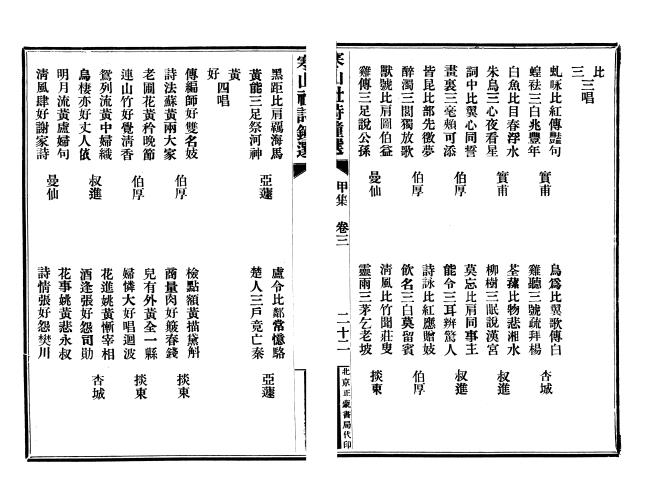 比
三 三唱
虬咏比紅傳豔句
蝗祛三白兆豐年 實甫
白魚比目春浮水
朱鳥三心夜看星 實甫
詞中比翼心同誓
畫裏三毫頰可添 伯厚
皆昆比部先徵夢
醉濁三閭獨放歌 伯厚
獸號比肩圖伯益
雞傳三足說公孫 曼仙
鳥爲比翼歌傳白
雞聽三號疏拜楊 杏城
比物悲湘水
柳樹三眠說漢宮 叔進
莫忘比肩同事主
能令三耳辨驚人 叔進
詩詠比紅應贈妓
飲名三白莫留賓 伯厚
清風比竹聞莊叟
靈雨三茅乞老坡 掞東
寒山社詩鐘選 甲集 卷三 二十二
北京正蒙書局代印
寒山社詩鐘選
黑距比肩羈海馬
黃能三足祭河神 亞蘧
黃
好 四唱
傳編師好雙名妓
詩法蘇黃兩大家 伯厚
老圃花黃矜晚節
連山竹好覺清香 伯厚
鴛列流黃中婦織
烏棲亦好丈人依 叔進
明月流黃盧婦句
清風肆好謝家詩 曼仙
盧令比鄰常憶駱
楚人三戶竟亡秦 亞蘧
檢點額黃描黛斛
商量肉好簸春錢 掞東
兒有外黃全一縣
婦憐大好唱迴波 掞東
花進姚黃慚宰相
酒逢張好怨司勛 杏城
花事姚黃悲永叔
詩情張好怨樊川